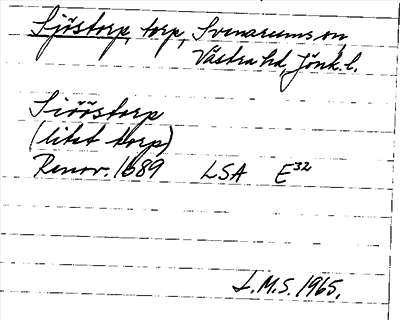 Sjöstorp, torp, Svenarums sn
Västra hd, Jönk. l.
Siööstorp
(litet torp)
Renov. 1689 LSA E32
L.M.S. 1965.